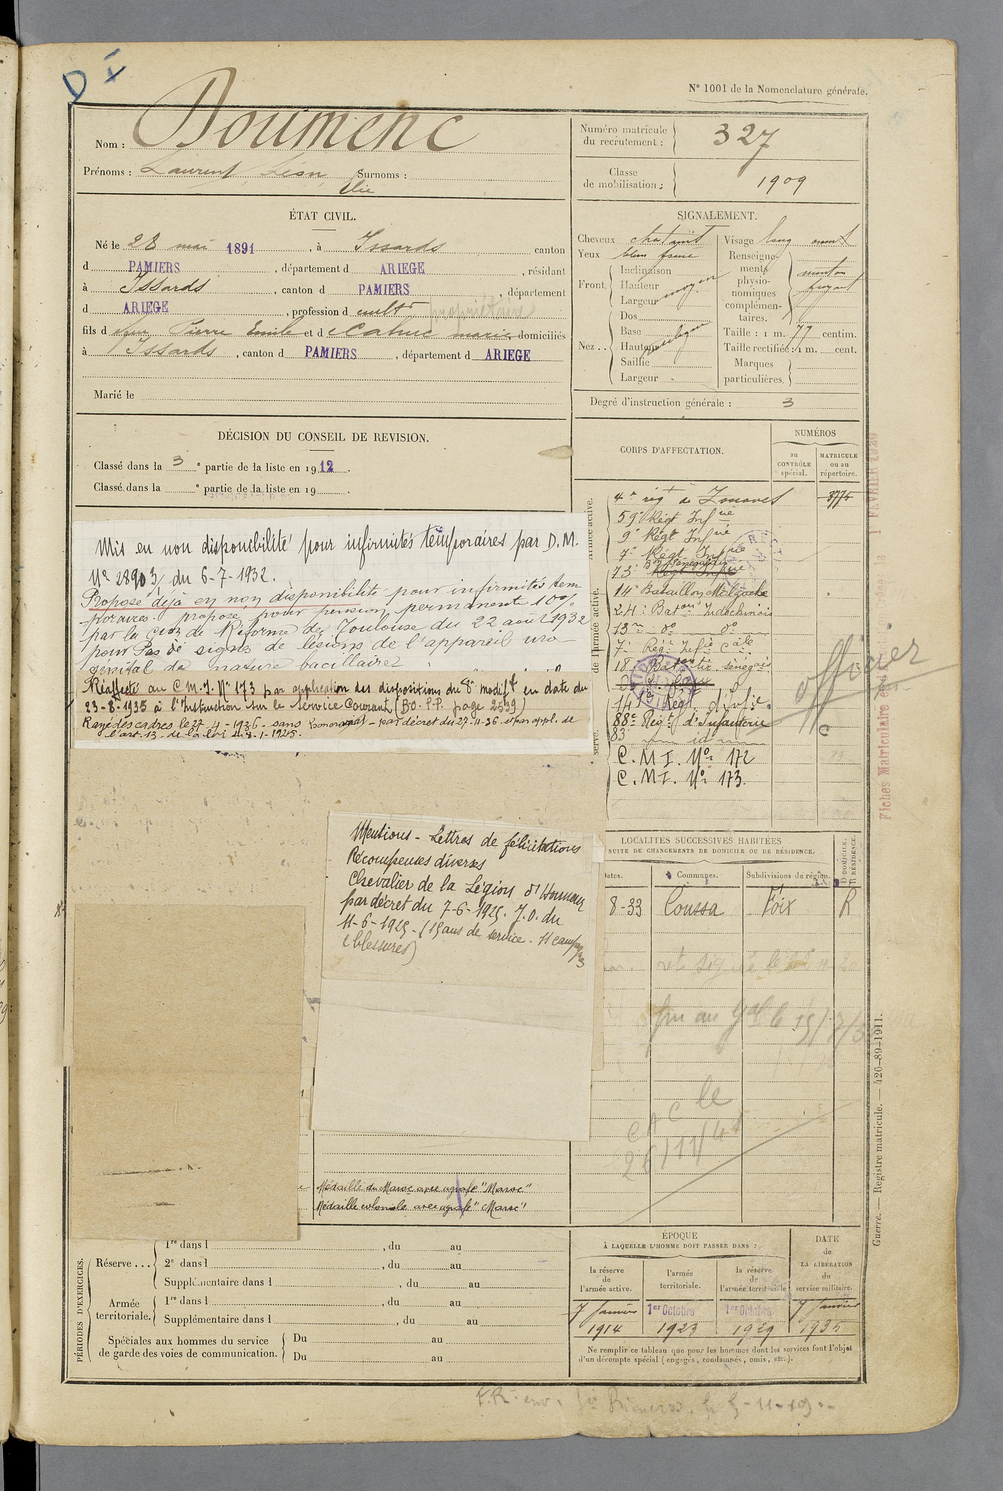 D
N° 1001 de la Nomenclature générale.
Nom : Doumenc
Prénoms : Laurent, Léon, Elie Surnoms :
Numéro matricule du recrutement : 327
Classe de mobilisation : 1909
ÉTAT CIVIL.
Né le 28 mai 1891, à Issards canton
d PAMIERS, département d ARIEGE, résidant
à Issards, canton d PAMIERS, département
d ARIEGE, profession de cultr propriétaire
fils d Pierre Emile et d Cahuc marie, domiciliés
à Issards, canton d PAMIERS, département d ARIEGE
Marié le
SIGNALEMENT.
Cheveux chatains Visage long
Yeux
Front. Inclinaison
Hauteur
Largeur moyen
Nez .. Dos
Base
Hauteur
Saillie
Largeur
Renseignements physionomiques complémentaires. menton fuyant
Taille : 1 m. 77 centim.
Taille rectifiée : 1 m. cent.
Marques particulières.
Degré d'instruction générale : 3
DÉCISION DU CONSEIL DE REVISION.
Classé dans la 3e partie de la liste en 1912.
Classé dans la e partie de la liste en 19
CORPS D'AFFECTATION.
NUMÉROS
au CONTRÔLE spécial.
MATRICULE ou au répertoire.
4e rég de Zouaves
59e Régt Infie
9e Régt Infie
7e Régt Infie
14e Bataillon Malgache
24e Baton Indochinois
13me do do
7e Rég. Infie Cale
18e Baton tir. sénégais
14e Régt d'Infie
88e Régt d'Infanterie
83 id
C. M. I. No 172
C. M. I. No 173.
officier
de l'armée active.
Mis en non disponibilité pour infirmités temporaires par D.M.
No 28903 du 6-7-1932.
Proposé déjà en non disponibilité pour infirmités tem
poraires proposé pour pension permanente 100%
par la Cion de Réforme de Toulouse du 22 août 1932
pour Pas de signes de lésions de l'appareil uro-
génital de nature bacillaire
Réaffecté au C.M.I. No 173 par application des dispositions du 8e modift en date du
23-8-1935 à l'Instruction sur le service Courant (BO. P.P. page 2539)
Rayé des cadres le 27-4-1936 - sans honorariat - par décret du 27-4-36 et par appl. de
l'art. 13 - de la loi du 8-1-1925.
Mentions - Lettres de félicitations
Récompenses diverses
Chevalier de la Légion d'Honneur
par décret du 7-6-1925. J.O. du
11-6-1925 - (15 ans de service. 11 campagnes
(blessures)
LOCALITÉS SUCCESSIVES HABITÉES
SUITE DE CHANGEMENTS DE DOMICILE OU DE RÉSIDENCE.
Dates. Communes. Subdivisions de région. D DOMICILE. R RÉSIDENCE.
8-33 Coussa Foix R
CAC le
26/11/41
Médaille du Maroc avec agrafe "Maroc"
Médaille coloniale avec agrafe "Maroc"
PÉRIODES D'EXERCICES.
Réserve ...
1re dans l , du au
2e dans l , du au
Supplémentaire dans l , du au
Armée territoriale.
1re dans l , du au
Supplémentaire dans l , du au
Spéciales aux hommes du service de garde des voies de communication.
Du au
Du au
ÉPOQUE
À LAQUELLE L'HOMME DOIT PASSER DANS :
la réserve de l'armée active.
l'armée territoriale.
la réserve de l'armée territoriale.
DATE de LA LIBÉRATION du service militaire.
7 Janvier 1914
1er Octobre 1923
1er Octobre 1929
7 Janvier 1935
Ne remplir ce tableau que pour les hommes dont les services font l'objet
d'un décompte spécial (engagés, condamnés, omis, etc.).
Guerre. — Registre matricule. — 420-89-1911.